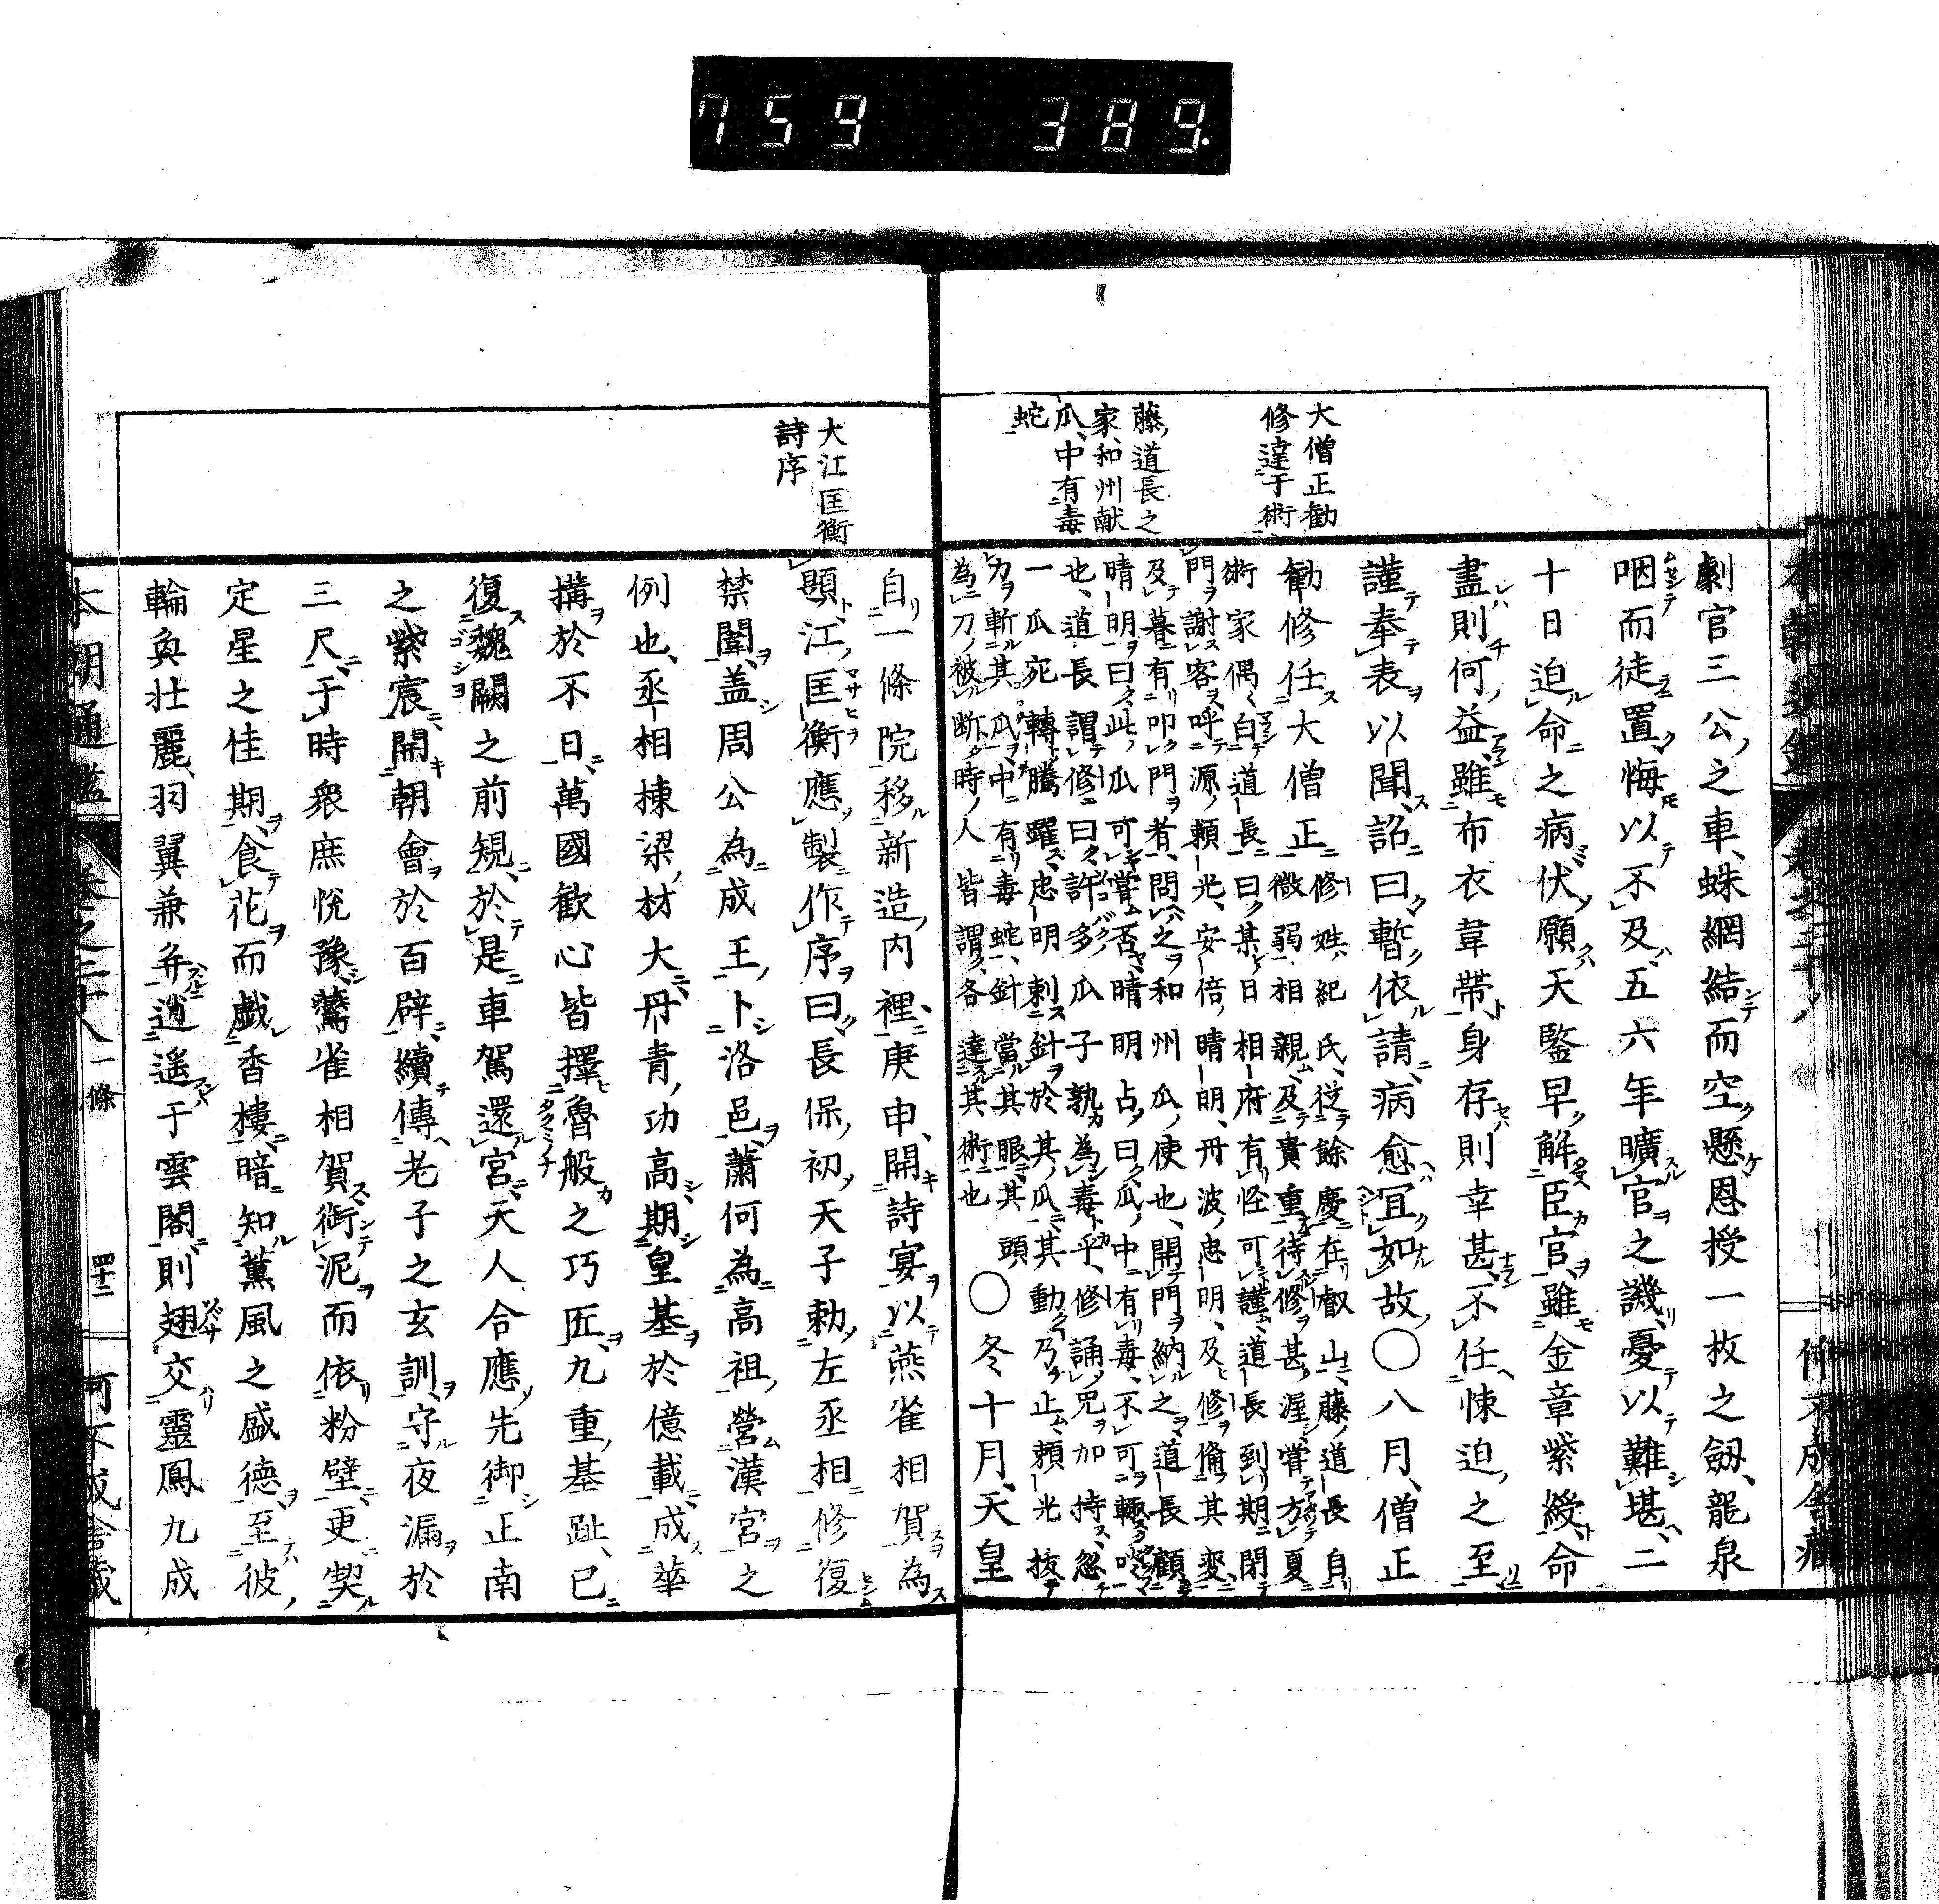 759 389.
大僧正勧
修達于術
藤道長之
家和州献
瓜中有毒
蛇
劇官三公之車蛛網結而空懸恩授一枚之劔龍泉
咽而徒置悔以不及五六年曠官之譏憂以難堪二
十日迫命之病伏願天鑒早解臣官雖金章紫綬命
盡則何益雖布衣韋帶身存則幸甚不任悚迫之至
謹奉表以聞詔曰暫依請病愈宜如故〇八月僧正
勧修任大僧正
修姓紀氏従餘慶在叡山藤道長自
微弱相親及貴重待修甚渥嘗方夏
術家偶白道長曰某日相府有怪可謹道長到期閉
門謝客呼源頼光安倍晴明丹波忠明及修備其変
及暮有叩門者問之和州瓜使也開門納之道長顧
晴明曰此瓜可嘗否晴明占曰瓜中有毒不可輙啖
也道長謂修曰許多瓜子孰為毒乎修誦咒加持忽
一瓜宛轉騰躍忠明刺針於其瓜其動乃止頼光抜
刀斬其瓜中有毒蛇針當其眼其頭
為刀被断時人皆謂各達其術也
〇冬十月天皇
大江匡衡
詩序
自一條院移新造内裡庚申開詩宴以燕雀相賀為
題江匡衡應製作序曰長保初天子勅左丞相修復
禁闈盖周公為成王卜洛邑蕭何為高祖營漢宮之
例也丞相棟梁材大丹青功高期皇基於億載成華
搆於不日萬國歓心皆擇魯般之巧匠九重基趾已
復魏闕之前規於是車駕還宮天人合應先御正南
之紫宸開朝會於百辟續傳老子之玄訓守夜漏於
三尺于時衆庶悦豫鷰雀相賀銜泥而依粉壁更契
定星之佳期食花而戯香樓暗知薫風之盛徳至彼
輪奐壮麗羽翼兼弁逍遥于雲閣則翅交靈鳳九成
本朝通鑑 巻之二十八 一條 四十二